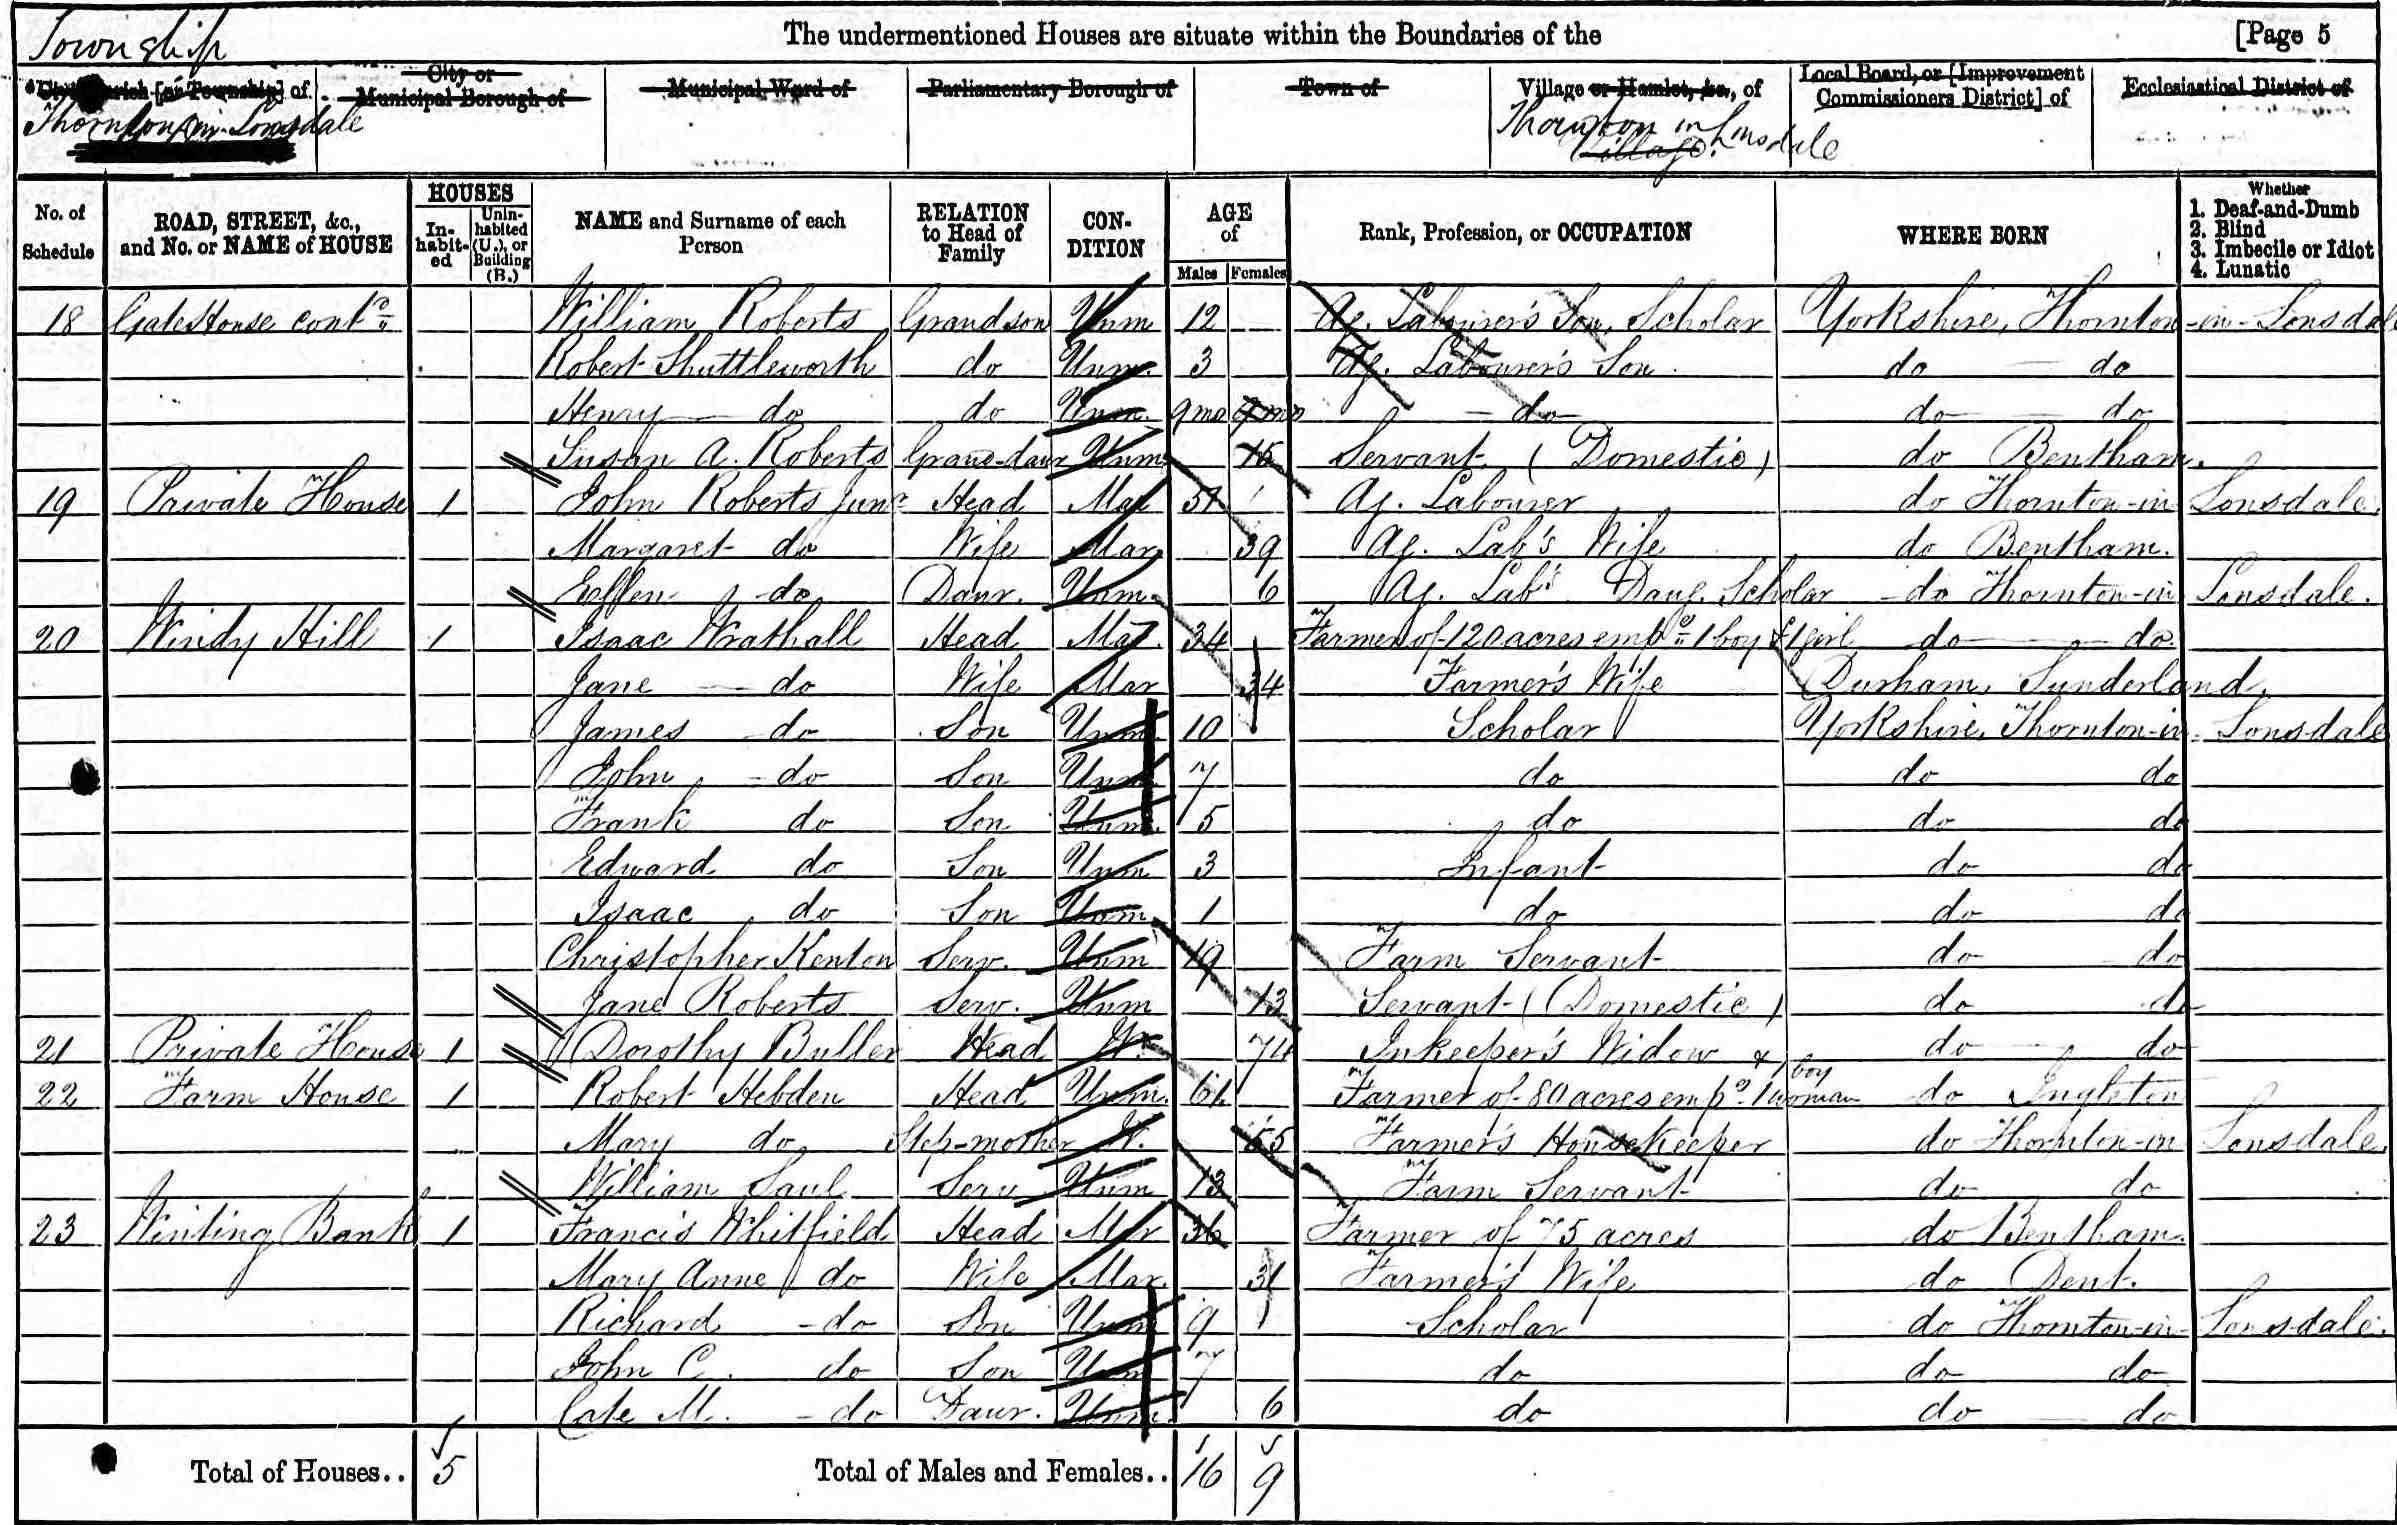 Township
The undermentioned Houses are situate within the Boundaries of the [Page 5
[or Township] of City or Municipal Borough of Municipal Ward of Parliamentary Borough of Town of Village or Hamlet, &c., of Local Board, or [Improvement Commissioners District] of Ecclesiastical District of
Thornton in Lonsdale Thornton in Lonsdale
Village
No. of Schedule ROAD, STREET, &c., and No. or NAME of HOUSE HOUSES Inhabited Uninhabited (U.), or Building (B.) NAME and Surname of each Person RELATION to Head of Family CONDITION AGE of Males Females Rank, Profession, or OCCUPATION WHERE BORN Whether 1. Deaf-and-Dumb 2. Blind 3. Imbecile or Idiot 4. Lunatic
18 Gate House contd William Roberts Grandson Unm 12 Ag. Labourer's Son, Scholar Yorkshire, Thornton-in-Lonsdale
Robert Shuttleworth do Unm. 3 Ag. Labourer's Son do do
Henry do do Unm. 9mo 9mo do do do
Susan A. Roberts Grand-daur Unm 15 Servant (Domestic) do Bentham.
19 Private House 1 John Roberts Junr Head Mar Ag. Labourer do Thornton-in Lonsdale.
Margaret do Wife Mar. 39 Ag. Lab's Wife do Bentham.
Ellen do Daur. Unm. 6 Ag. Lab's Daug. Scholar do Thornton-in Lonsdale.
20 Windy Hill 1 Isaac Wrathall Head Mar. 34 Farmer of 120 acres empg 1 boy & 1 girl do do.
Jane do Wife Mar 34 Farmer's Wife Durham, Sunderland.
James do Son Unm. 10 Scholar Yorkshire, Thornton-in-Lonsdale
John do Son Unm 7 do do do
Frank do Son Unm. 5 do do do
Edward do Son Unm 3 Infant do do
Isaac do Son Unm. 1 do do do
Christopher Kenton Serv. Unm 19 Farm Servant do do
Jane Roberts Serv. Unm 13 Servant (Domestic) do do
21 Private House 1 Dorothy Butler Head W. 74 Inkeeper's Widow do do
22 Farm House 1 Robert Hebden Head Unm. 61 Farmer of 80 acres empg 1 woman & 1 boy do Ingleton
Mary do Step-mother W. 55 Farmer's Housekeeper do Thornton-in Lonsdale.
William Saul Serv Unm 13 Farm Servant do do
23 Winting Bank 1 Francis Whitfield Head Mar 36 Farmer of 75 acres do Bentham.
Mary Anne do Wife Mar. 31 Farmer's Wife do Dent.
Richard do Son Unm 9 Scholar do Thornton-in-Lonsdale.
John C. do Son Unm 7 do do do
Cate M. do Daur. Unm. 6 do do do
Total of Houses.. 5 Total of Males and Females.. 16 9